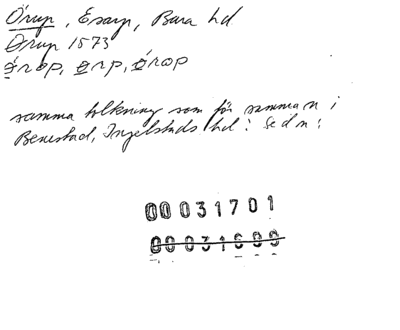 Örup, Esarp, Bara hd
Ørup 1573
samma tolkning som för samman i
Benestad, Ingelstads hd: se d n:
00 031701
00 031699